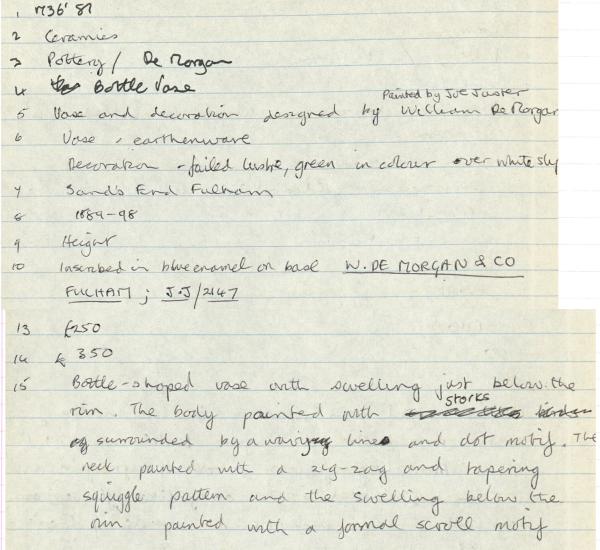 1 M36'87
2 Ceramics
3 Pottery / De Morgan
4 Bottle Vase
Painted by Joe Juster
5 Vase and decoration designed by William De Morgan
6 Vase - earthenware
Decoration - failed lustre, green in colour over white slip
7 Sands End Fulham
8 1889-98
9 Height
10 Inscribed in blue enamel on base W. DE MORGAN & CO
FULHAM ; J.J/2147
13 £250
14 £ 350
15 Bottle-shaped vase with swelling just below the
storks
rim. The body painted with
surrounded by a wavy line and dot motif. The
neck painted with a zig-zag and tapering
squiggle pattern and the swelling below the
rim painted with a formal scroll motif